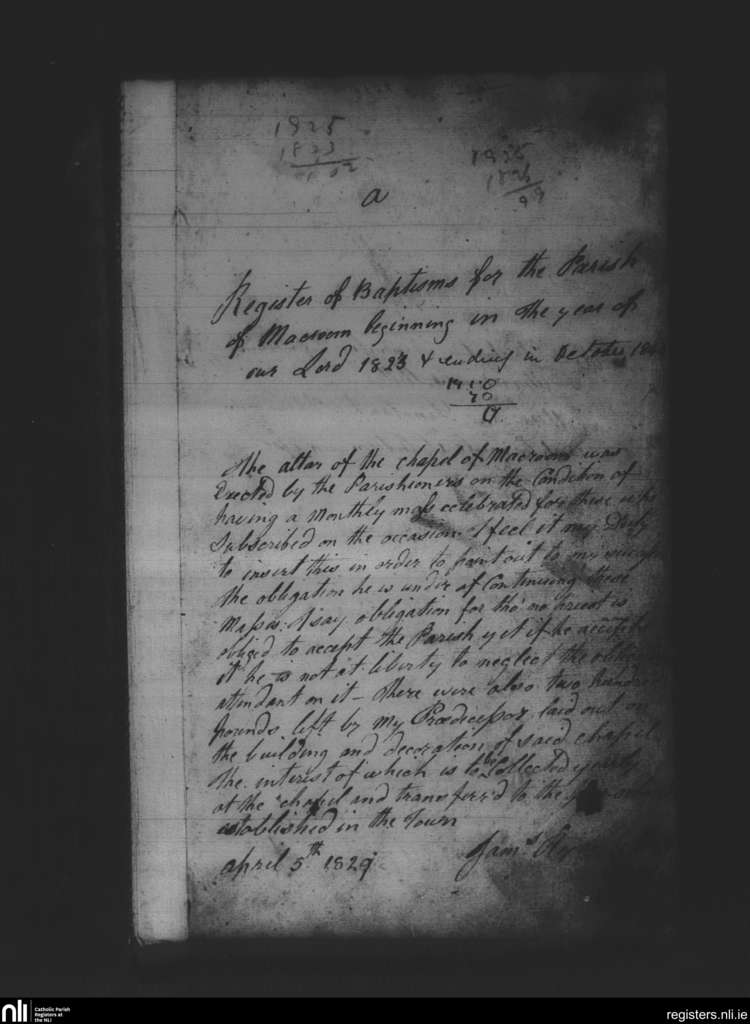 1925
1823
102
1925
1826
99
a
Register of Baptisms for the Parish
of Macroom beginning in the year of
our Lord 1823 & ending in October
70
The altar of the chapel of Macroom was
Erected by the Parishioners on the Condition of
having a Monthly mass celebrated for those who
Subscribed on the occasion. I feel it my Duty
to insert this in order to point out to my
the obligation he is under of Continuing these
Masses. I say obligation for tho' no priest is
obliged to accept the Parish yet if he accepts
it he is not at liberty to neglect the
attendant on it - There were also two
pounds left by my Prædicessor laid out on
the building and decoration of said chapel
the interest of which is to be Collected yearly
at the chapel and transferr'd to the
established in the Town
april 5th 1829
Jams
nli
Catholic Parish
Registers at
the NLI
registers.nli.ie